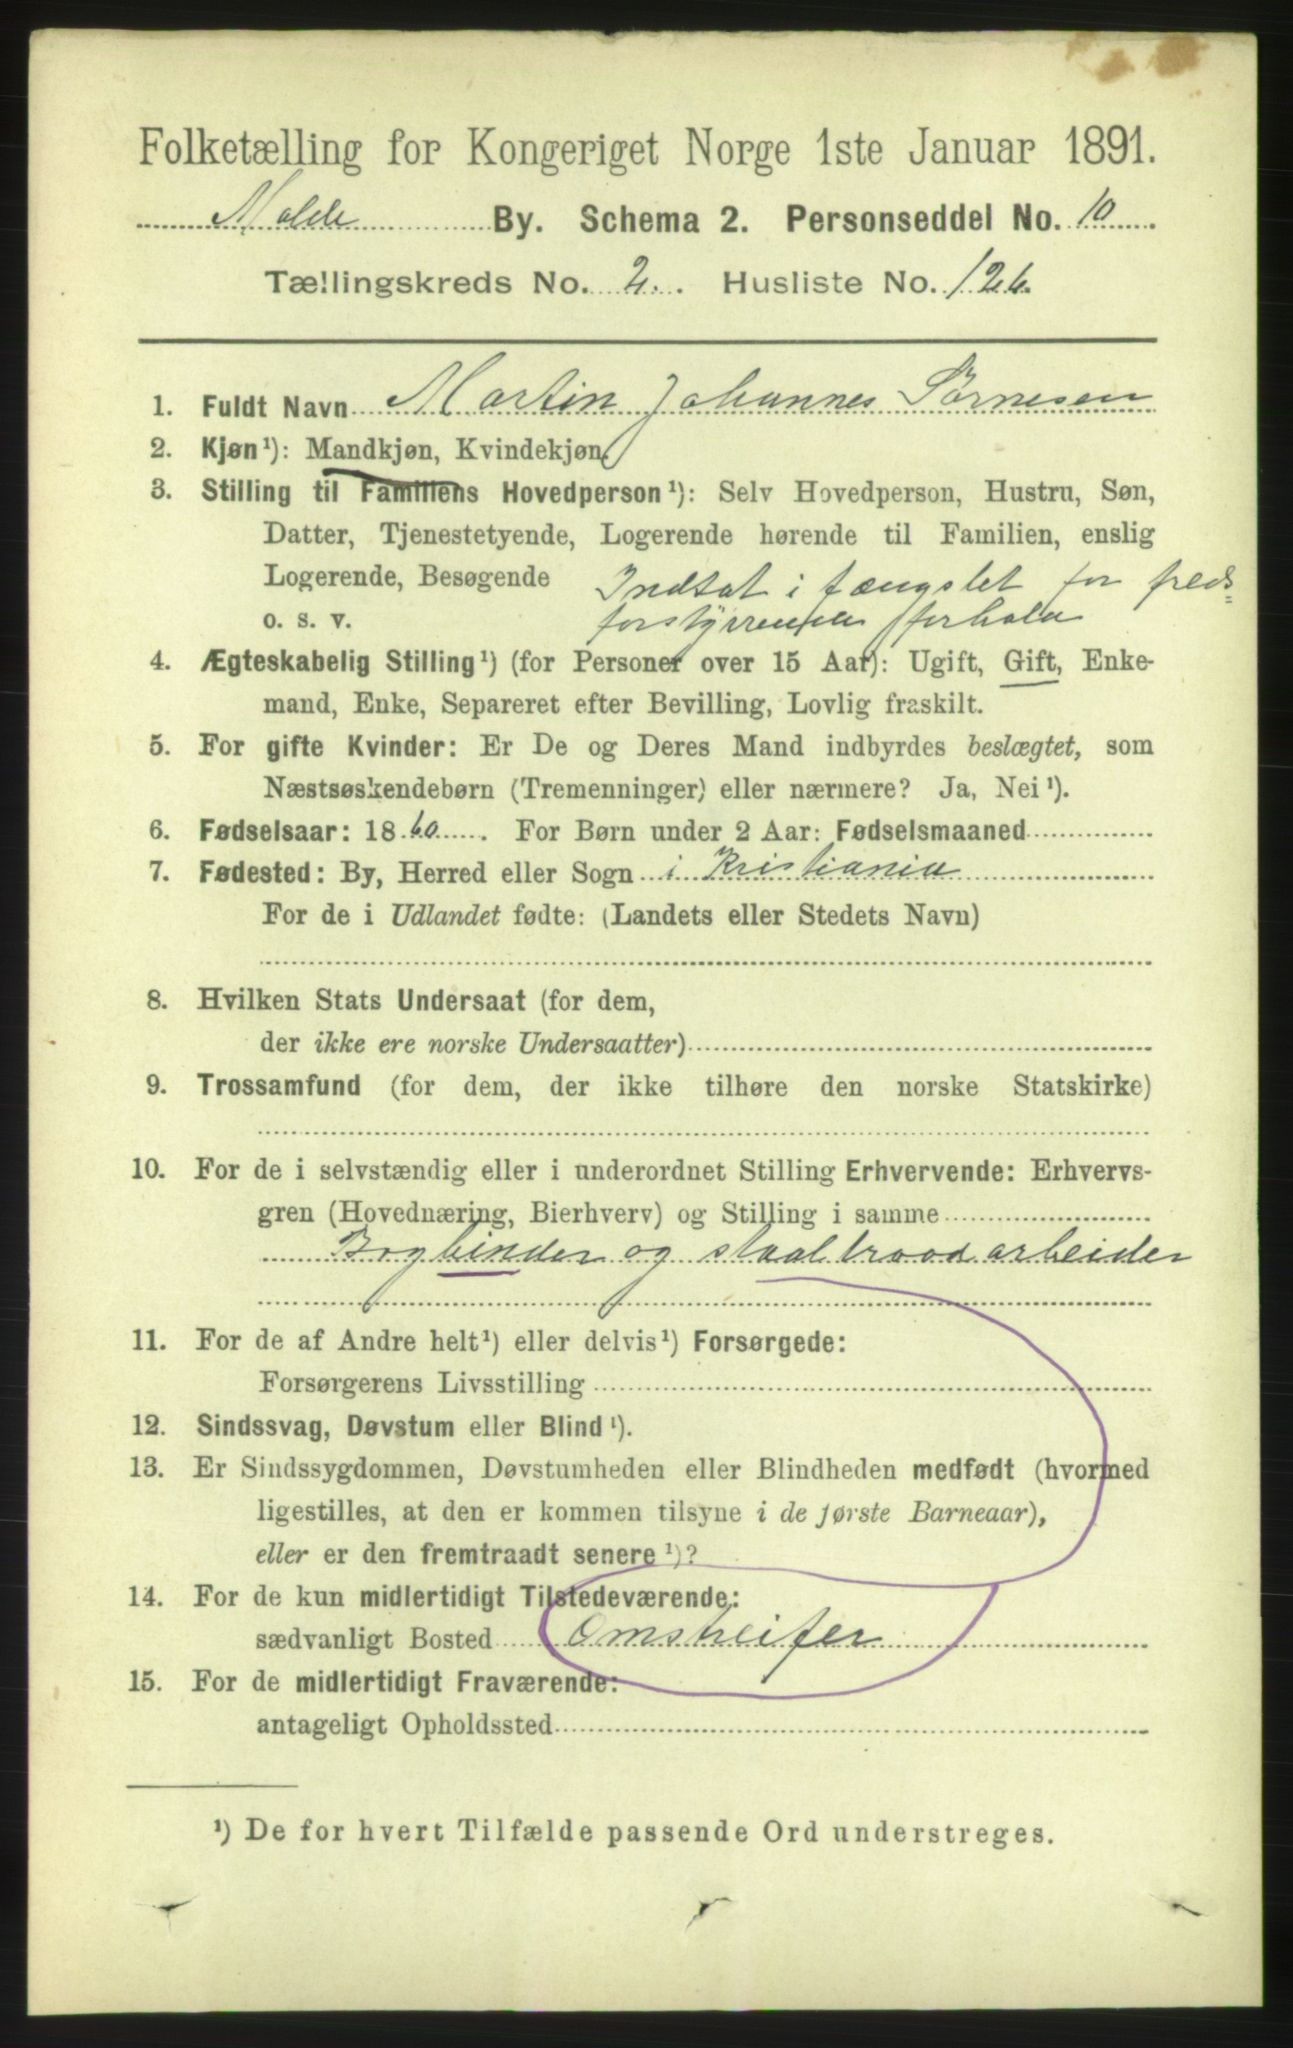 Folketælling for Kongeriget Norge 1ste Januar 1891.
Molde By. Schema 2. Personseddel No. 10
Tællingskreds No. 2. Husliste No. 126.
1. Fuldt Navn Martin Johannes Sørnesen
2. Kjøn ¹): Mandkjøn, Kvindekjøn.
3. Stilling til Familiens Hovedperson ¹): Selv Hovedperson, Hustru, Søn,
Datter, Tjenestetyende, Logerende hørende til Familien, enslig
Logerende, Besøgende Indsat i fængslet for freds=
o. s. v. forstyrrende forhold
4. Ægteskabelig Stilling ¹) (for Personer over 15 Aar): Ugift, Gift, Enke-
mand, Enke, Separeret efter Bevilling, Lovlig fraskilt.
5. For gifte Kvinder: Er De og Deres Mand indbyrdes beslægtet, som
Næstsøskendebørn (Tremenninger) eller nærmere? Ja, Nei ¹).
6. Fødselsaar: 1860. For Børn under 2 Aar: Fødselsmaaned
7. Fødested: By, Herred eller Sogn i Kristiania
For de i Udlandet fødte: (Landets eller Stedets Navn)
8. Hvilken Stats Undersaat (for dem,
der ikke ere norske Undersaatter)
9. Trossamfund (for dem, der ikke tilhøre den norske Statskirke)
10. For de i selvstændig eller i underordnet Stilling Erhvervende: Erhvervs-
gren (Hovednæring, Bierhverv) og Stilling i samme
Bogbinder og staaltraadarbeider
11. For de af Andre helt ¹) eller delvis ¹) Forsørgede:
Forsørgerens Livsstilling
12. Sindssvag, Døvstum eller Blind ¹).
13. Er Sindssygdommen, Døvstumheden eller Blindheden medfødt (hvormed
ligestilles, at den er kommen tilsyne i de første Barneaar),
eller er den fremtraadt senere ¹)?
14. For de kun midlertidigt Tilstedeværende:
sædvanligt Bosted Omstreifer
15. For de midlertidigt Fraværende:
antageligt Opholdssted
¹) De for hvert Tilfælde passende Ord understreges.